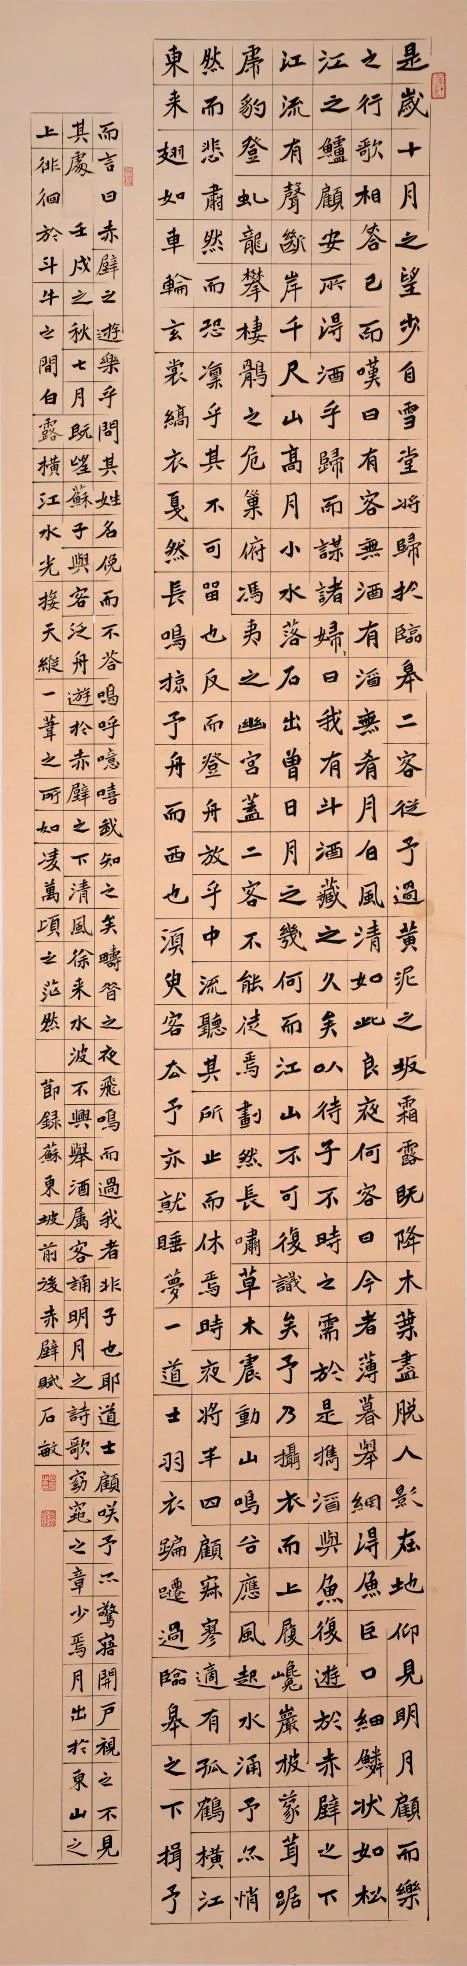 是歲十月之望步自雪堂將歸於臨皋二客從予過黃泥之坂霜露既降木葉盡脫人影在地仰見明月顧而樂
之行歌相答已而嘆曰有客無酒有酒無肴月白風清如此良夜何客曰今者薄暮舉網得魚巨口細鱗狀如松
江之鱸顧安所得酒乎歸而謀諸婦〻曰我有斗酒藏之久矣以待子不時之需於是攜酒與魚復遊於赤壁之下
江流有聲斷岸千尺山高月小水落石出曾日月之幾何而江山不可復識矣予乃攝衣而上履巉巖披蒙茸踞
虎豹登虬龍攀棲鶻之危巢俯馮夷之幽宮蓋二客不能從焉劃然長嘯草木震動山鳴谷應風起水涌予亦悄
然而悲肅然而恐凜乎其不可留也反而登舟放乎中流聽其所止而休焉時夜將半四顧寂寥適有孤鶴橫江
東來翅如車輪玄裳縞衣戛然長鳴掠予舟而西也須臾客去予亦就睡夢一道士羽衣蹁躚過臨皋之下揖予
而言曰赤壁之遊樂乎問其姓名俛而不答嗚呼噫嘻我知之矣疇昔之夜飛鳴而過我者非子也耶道士顧咲予亦驚寤開戶視之不見
其處 壬戌之秋七月既望蘇子與客泛舟遊於赤壁之下清風徐來水波不興舉酒属客誦明月之詩歌窈窕之章少焉月出於東山之
上徘徊於斗牛之間白露橫江水光接天縱一葦之所如凌萬頃之茫然 節録蘇東坡前後赤壁賦 石敏